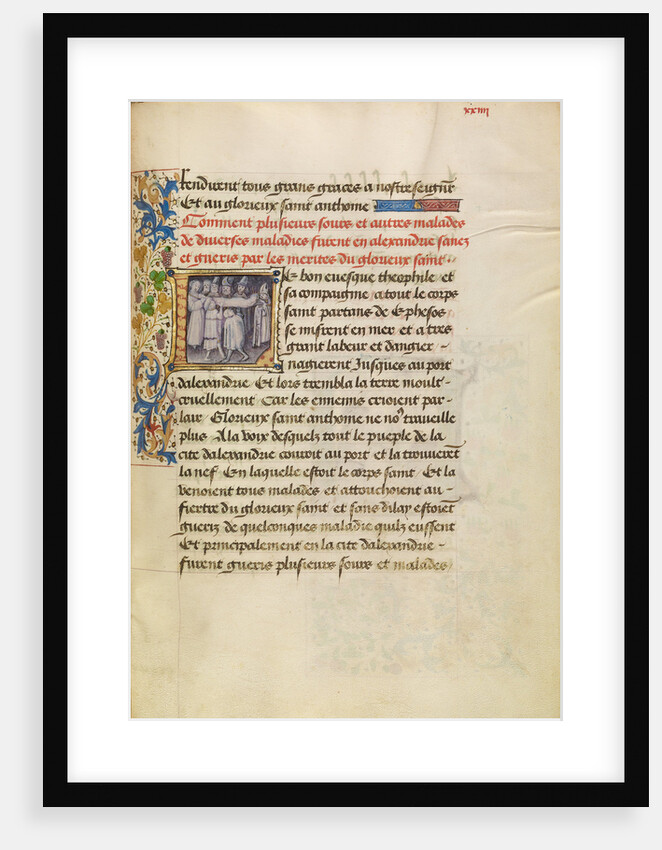 xxiiii
Rendirent tous grans graces a nostre seignr
Et au glorieux saint anthoine
Comment plusieurs sours et autres malades
de diverses maladies furent en alexandrie sanez
et gueris par les merites du glorieux saint.
Le bon evesque theophile et
sa compaignie a tout le corps
saint partans de Ephesos
se misrent en mer et a tres
grant labeur et dangier -
nagierent Jusques au port
dalexandrie Et lors trembla la terre moult -
cruellement Car les ennemis crioient par -
lair Glorieux saint anthoine ne nos traveille
plus A la voix desquelz tout le pueple de la
cite dalexandrie couroit au port et la trouverent
la nef En laquelle estoit le corps saint Et la
venoient tous malades et attouchoient au -
fiertre du glorieux saint et sans dilay estoient
gueriz de quelconques maladie quilz eussent
Et principalement en la cite dalexandrie -
furent gueris plusieurs sours et malades